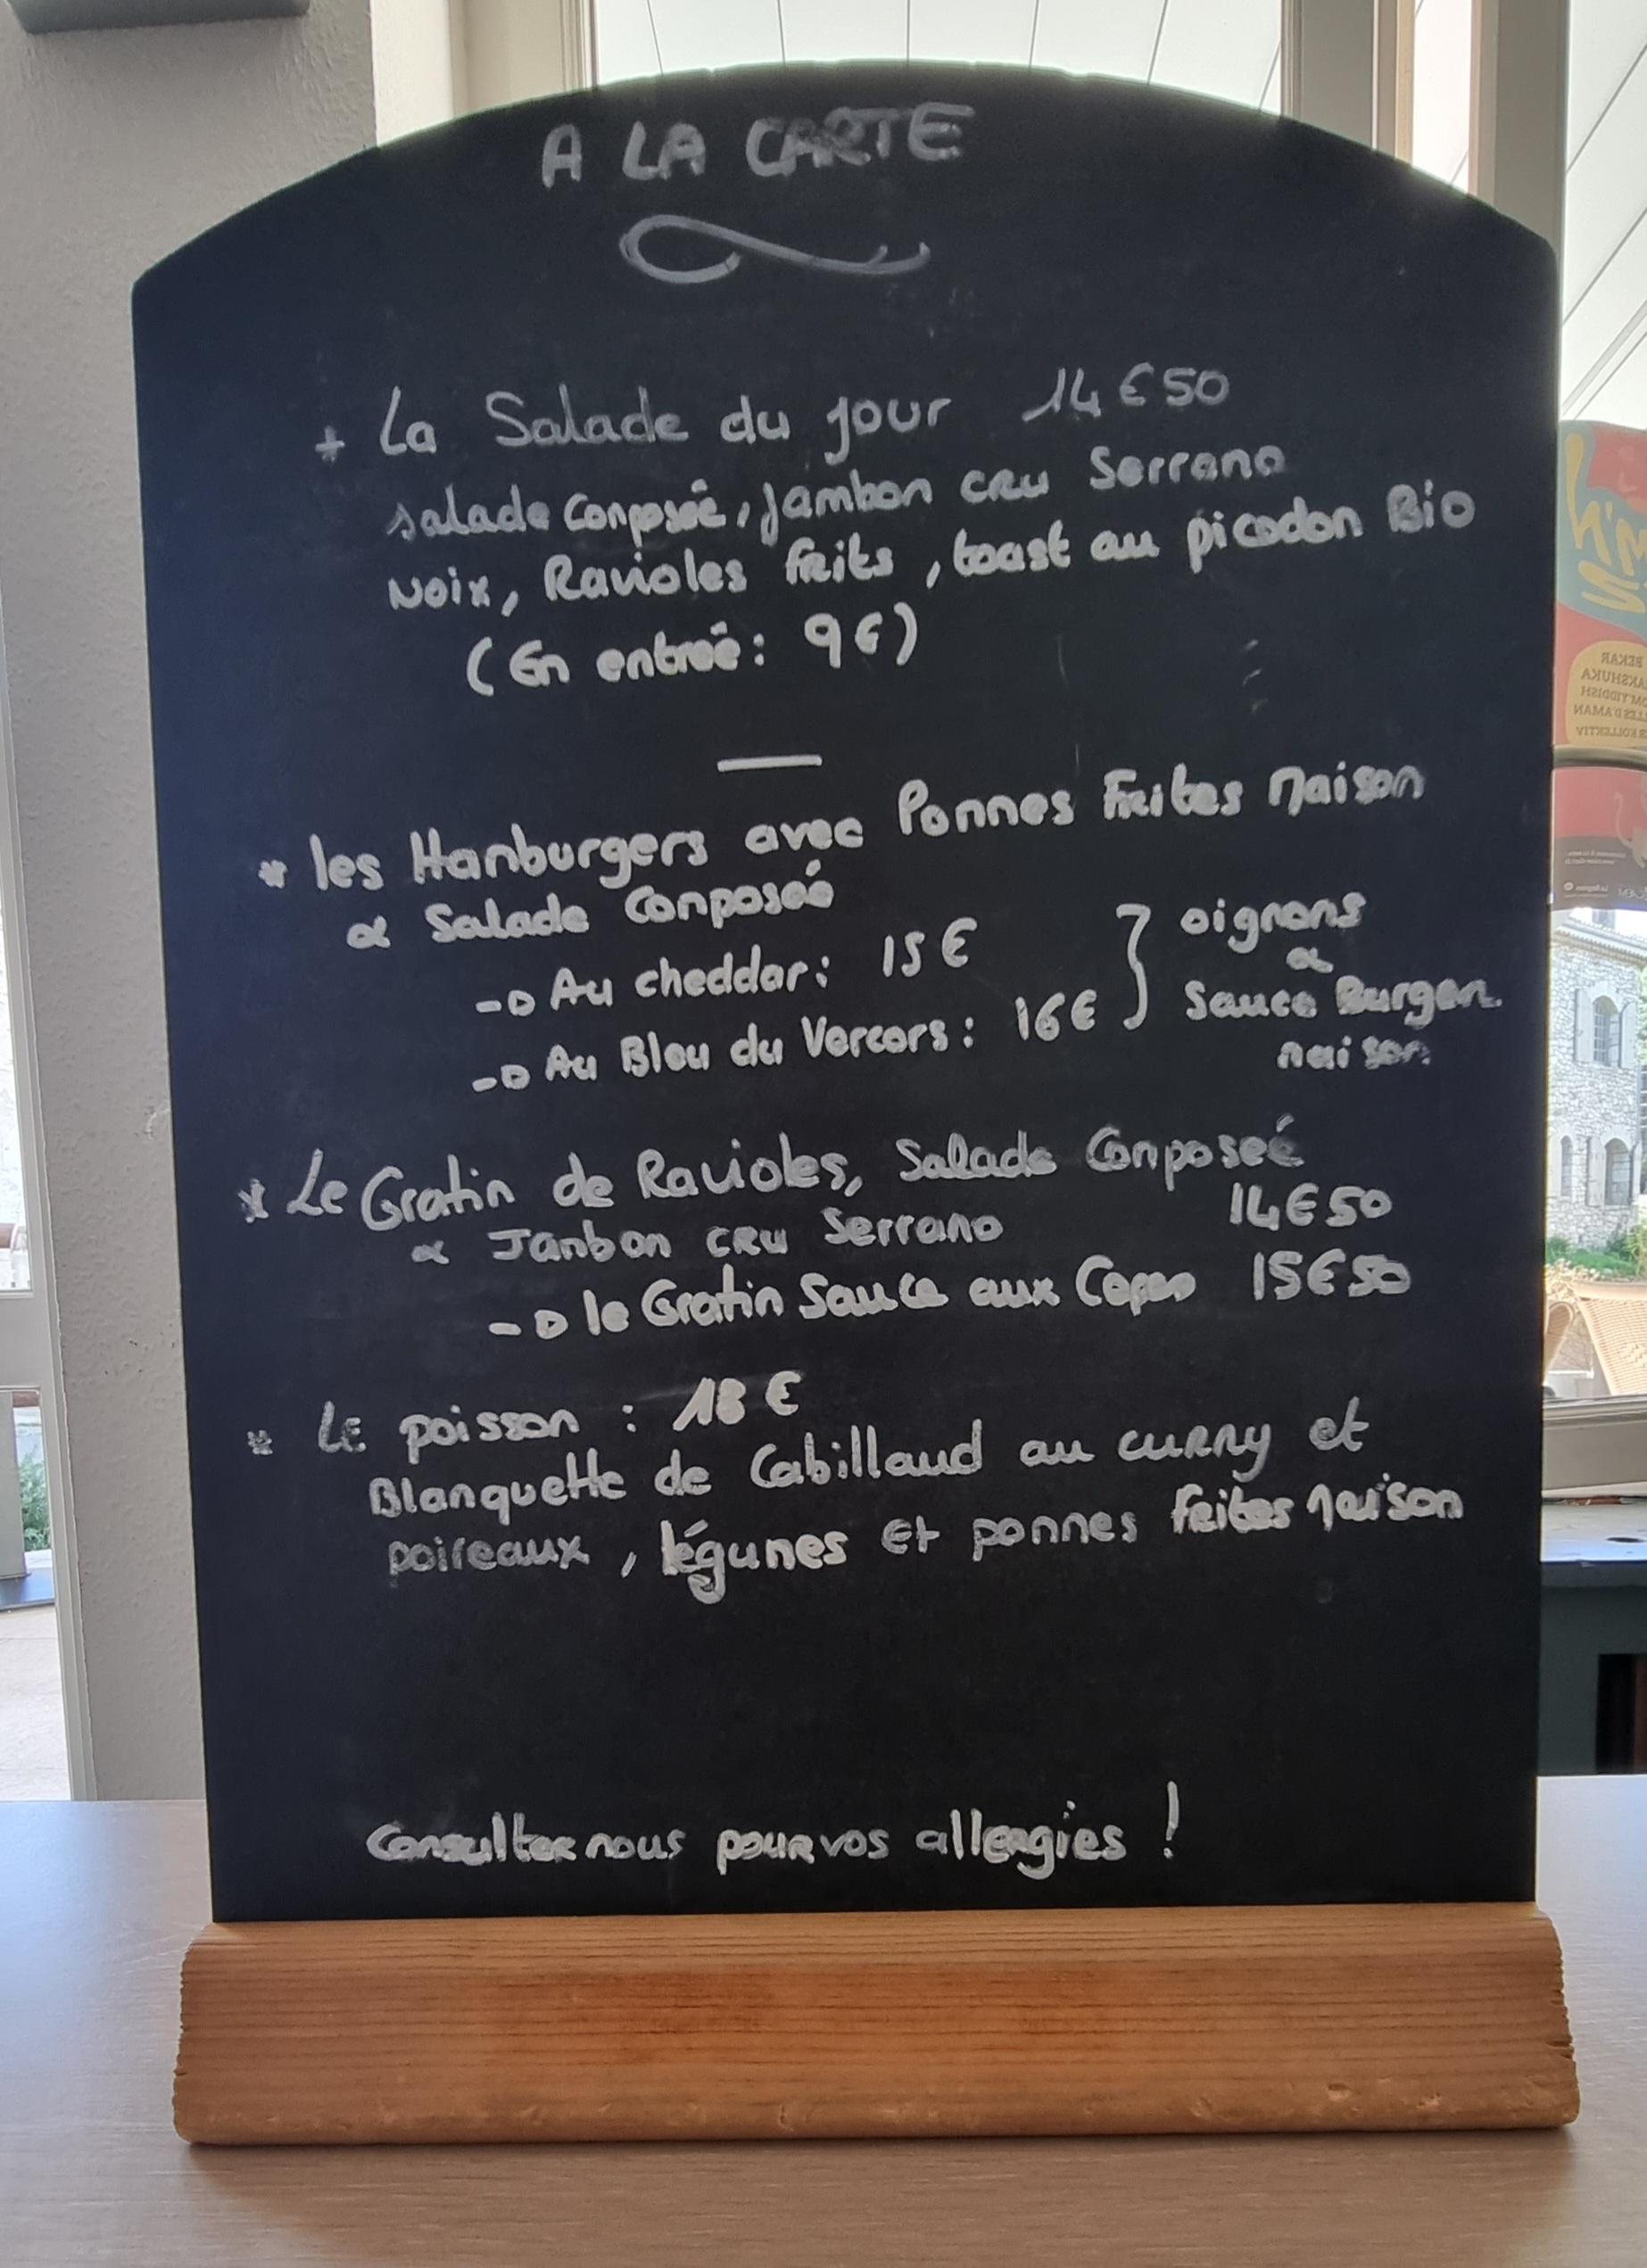 A LA CARTE
* La Salade du jour 14€50
salade Composée, Jambon cru Serrano
Noix, Ravioles frits, toast au picodon Bio
(En entrée: 9€)
* les Hamburgers avec Pommes Frites Maison
& Salade Composée
-> Au cheddar: 15€
-> Au Bleu du Vercors: 16€
} oignons
&
Sauce Burger
maison
* Le Gratin de Ravioles, Salade Composée
& Jambon cru Serrano 14€50
-> le Gratin Sauce aux Cepes 15€50
* LE poisson : 18€
Blanquette de Cabillaud au curry et
poireaux, légumes et pommes frites maison
Consultez nous pour vos allergies !
BEKAR